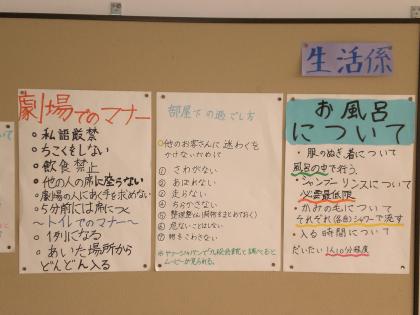 生活係
劇場でのマナー
○私語厳禁
○ちこくをしない
○飲食禁止
○他の人の席に座らない
○劇場の人にあく手を求めない
○5分前には席につく
～トイレでのマナー～
○1列になる
○あいた場所から
どんどん入る
部屋での過ごし方
○他のお客さんに迷わくを
かけないために
① さわがない
② あばれない
③ 走らない
④ ちらかさない
⑤ 整理整とん(荷物をまとめておく)
⑥ 危ないことはしない
⑦ 物をこわさない
お風呂
について
・服のぬぎ、着について
風呂の中で行う。
・シャンプー リンスについて
必要最低限
・かみの毛について
それぞれ(各自)シャワーで流す
・入る時間について
だいたい1人10分程度